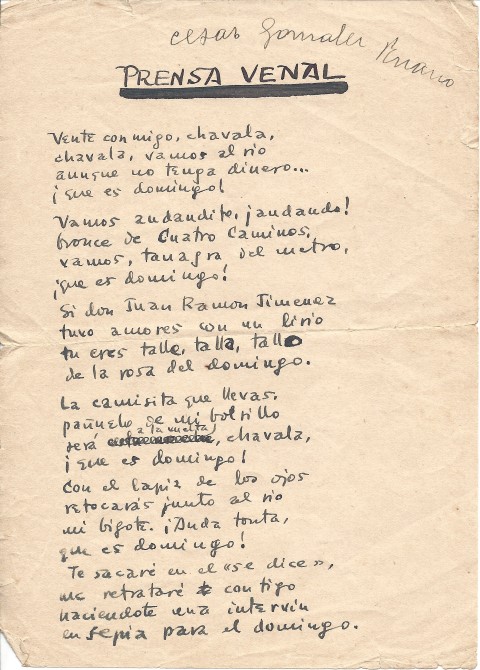 Cesar Gonzalez Ruano
PRENSA VENAL
Vente conmigo, chavala,
chavala, vamos al rio
aunque no tenga dinero...
¡que es domingo!
Vamos andandito, ¡andando!
bronce de Cuatro Caminos,
vamos, tanagra del metro,
¡que es domingo!
Si don Juan Ramon Jimenez
tuvo amores con un lirio
tu eres talle, talla, tallo
de la rosa del domingo.
La camisita que llevas,
pañuelo de mi bolsillo
a la vuelta
será, chavala,
¡que es domingo!
Con el lapiz de los ojos
retocarás junto al rio
mi bigote. ¡Anda tonta,
que es domingo!
Te sacaré en el «se dice»,
me retrataré contigo
haciendote una interviu
en sepia para el domingo.